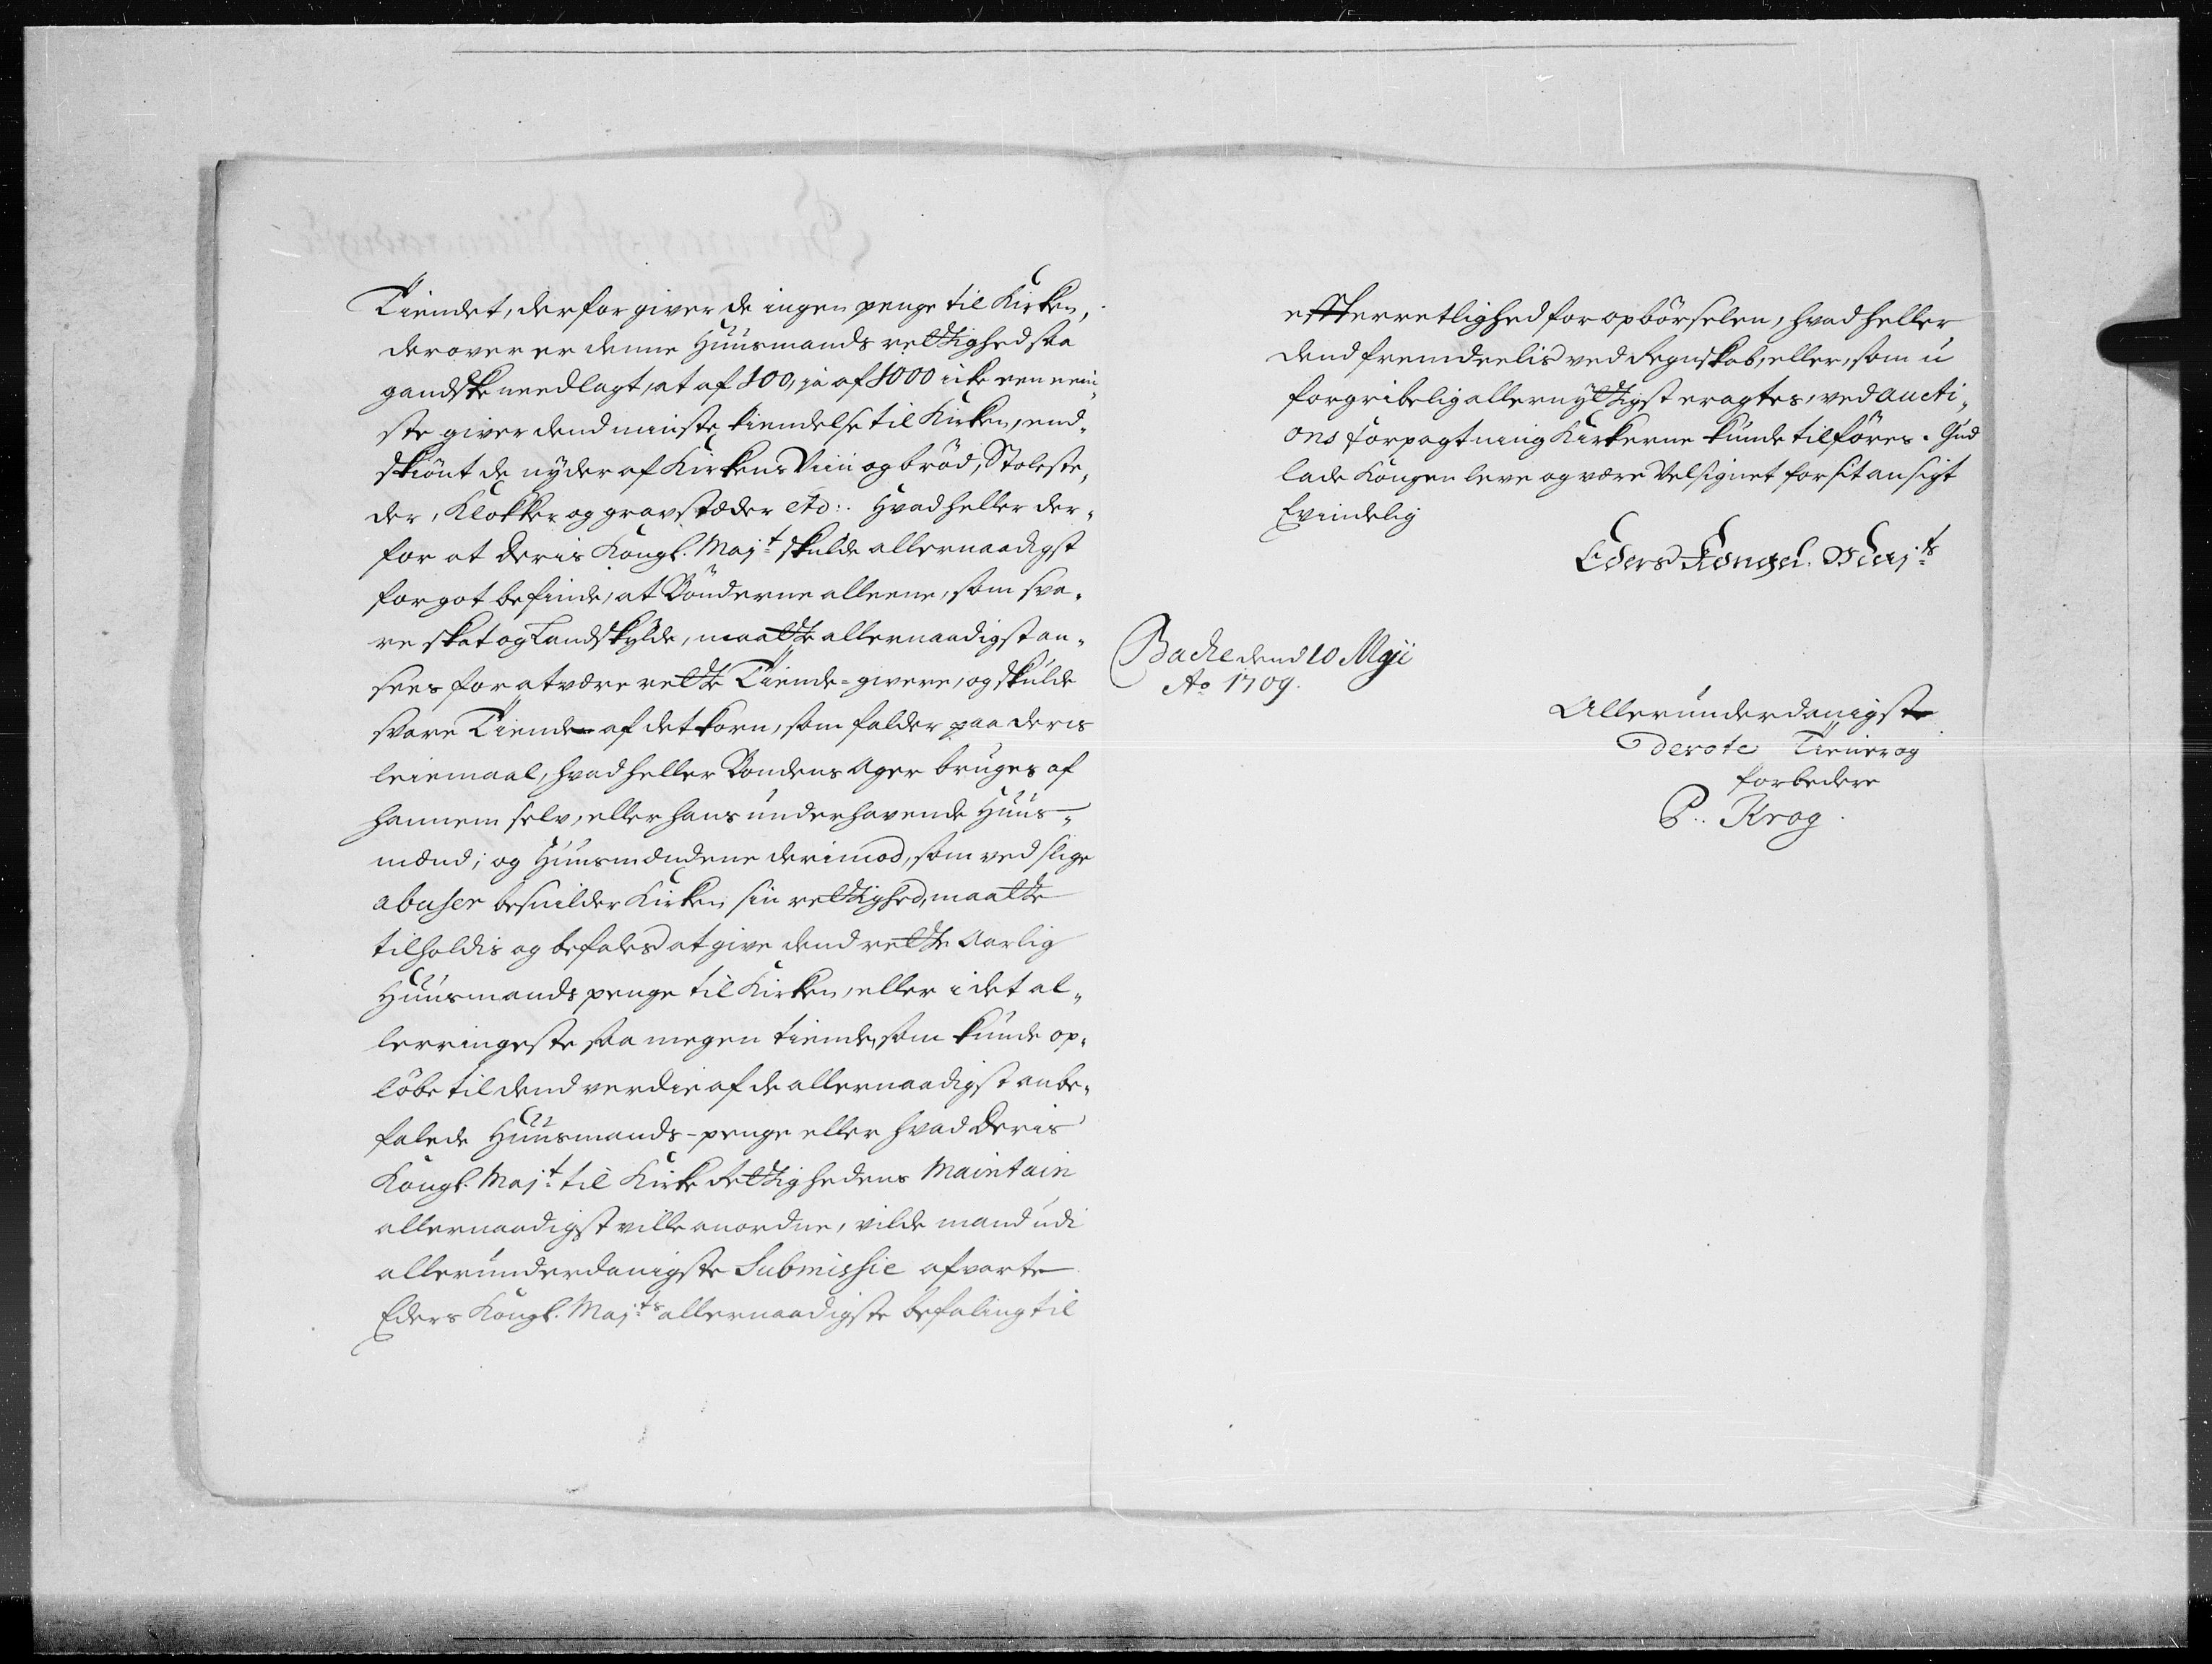 Tiendet, derfor giver de ingen penge til Kirken,
derover er denne Huusmands rettighed saa
gandske needlagt, at af 100, ja af 1000 icke een ein¬
ste giver dend minste kiendelse til Kirken, end¬
skiönt de nyder af Kirkens Viin og bröd, Stoleste¬
der, Klokker og gravstæder etc:. Hvad heller der¬
for at Deris Kongl. Majt skulde allernaadigst
for got befinde, at Bönderne alleene, som sva¬
re skat og Landskylde, maatte allernaadigst an¬
sees for at være rette Tiende-givere, og skulde
svare Tiende af det korn, som falder paa deris
leiemaal, hvad heller Bondens Ager bruges af
hannem selv, eller hans underhavende Huus¬
mænd; og Huusmændene derimod, som ved slige
abuser besnilder Kirken sin rettighed, maatte
tilholdis og befales at give dend rette Aarlig
Huusmands penge til Kirken, eller i det al¬
lerringeste saa megen tiende, som kunde op¬
löbe til dend verdie af de allernaadigst anbe¬
falede Huusmands-penge eller hvad Deris
Kongl. Majt til Kirke Rettighedens Maintain
allernaadigst ville anordne, vilde mand udi
allerunderdanigste Submissie afvarte
Eders Kongl. Majts allernaadigste befaling til
efterretlighed for opbörselen, hvad heller
dend fremdeelis ved Regnskab, eller, som u
forgribelig allernyttigst eragtes, ved aucti¬
ons forpagtning Kirkerne kunde tilföres. Gud
lade Kongen leve og være Velsignet for sit ansigt
Evindelig
Eders Kongel. Majts
Bache dend 10 Maji
Ao 1709.
Allerunderdanigste
devote Tiener og
forbedere
P. Krog.